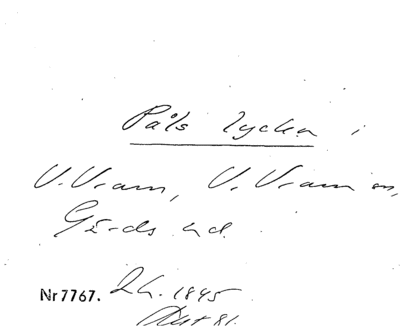 Påls lycka i
V. Vram, V. Vram sn,
Gärds hd.
Nr 7767. 1845